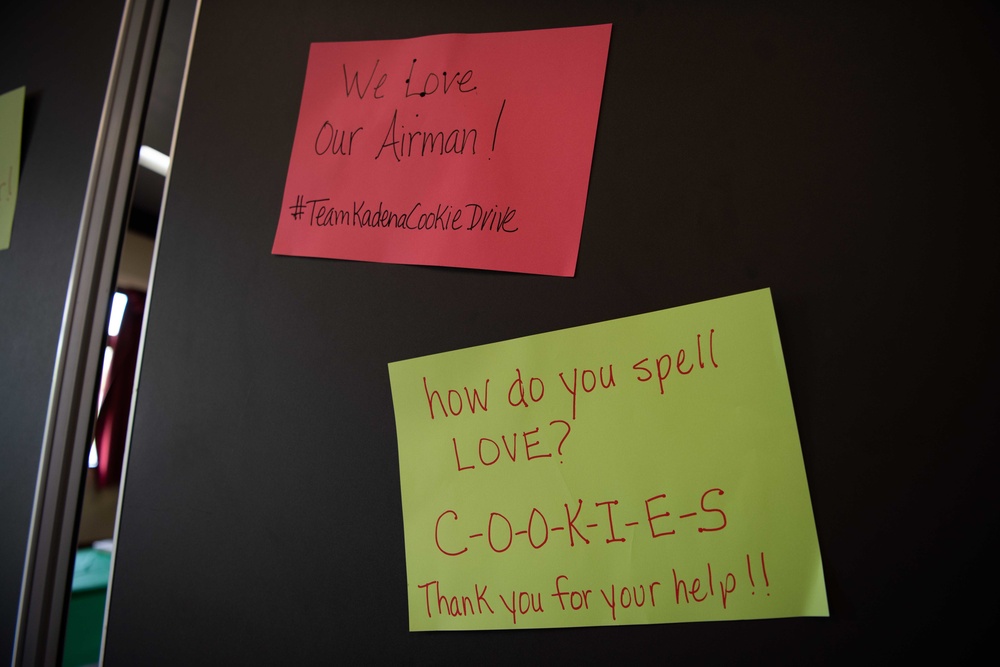 We Love
Our Airman!
#TeamKadenaCookieDrive
how do you spell
LOVE?
C-O-O-K-I-E-S
Thank you for your help!!